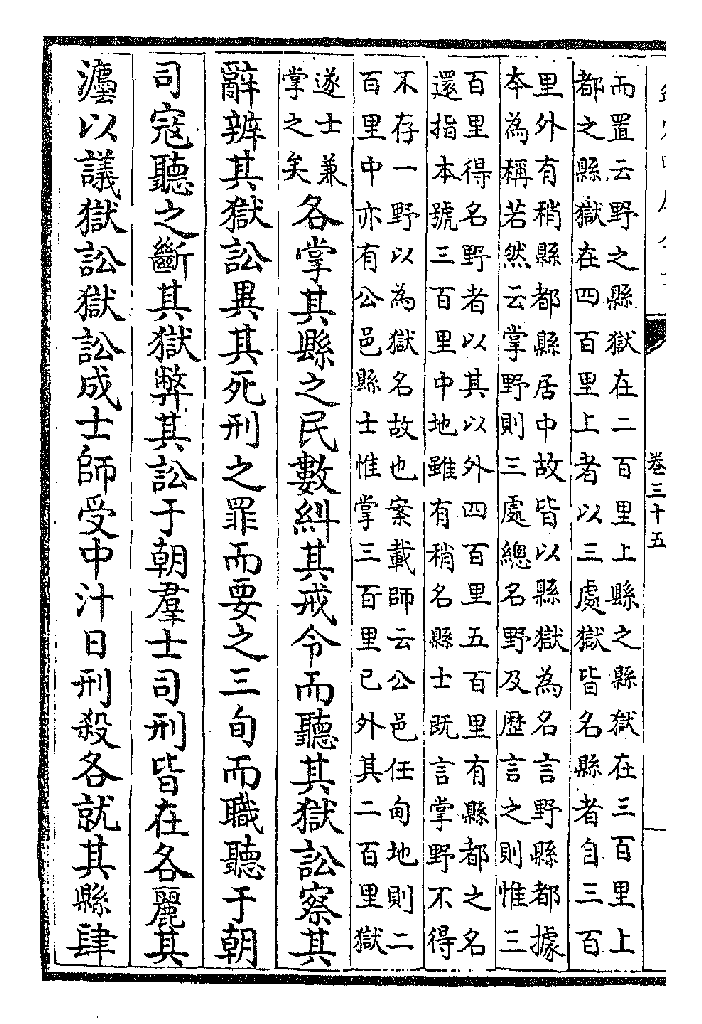 卷三十五
而置云野之縣獄在二百里上縣之縣獄在三百里上
都之縣獄在四百里上者以三處獄皆名縣者自三百
里外有稍縣都縣居中故皆以縣獄為名言野縣都據
本為稱若然云掌野則三處總名野及歷言之則惟三
百里得名野者以其以外四百里五百里有縣都之名
還指本號三百里中地雖有稍名縣士既言掌野不得
不存一野以為獄名故也案載師云公邑任甸地則二
百里中亦有公邑縣士惟掌三百里已外其二百里獄
遂士兼
掌之矣
各掌其縣之民數糾其戒令而聽其獄訟察其
辭辨其獄訟異其死刑之罪而要之三旬而職聽于朝
司寇聽之斷其獄弊其訟于朝羣士司刑皆在各麗其
灋以議獄訟獄訟成士師受中汁日刑殺各就其縣肆